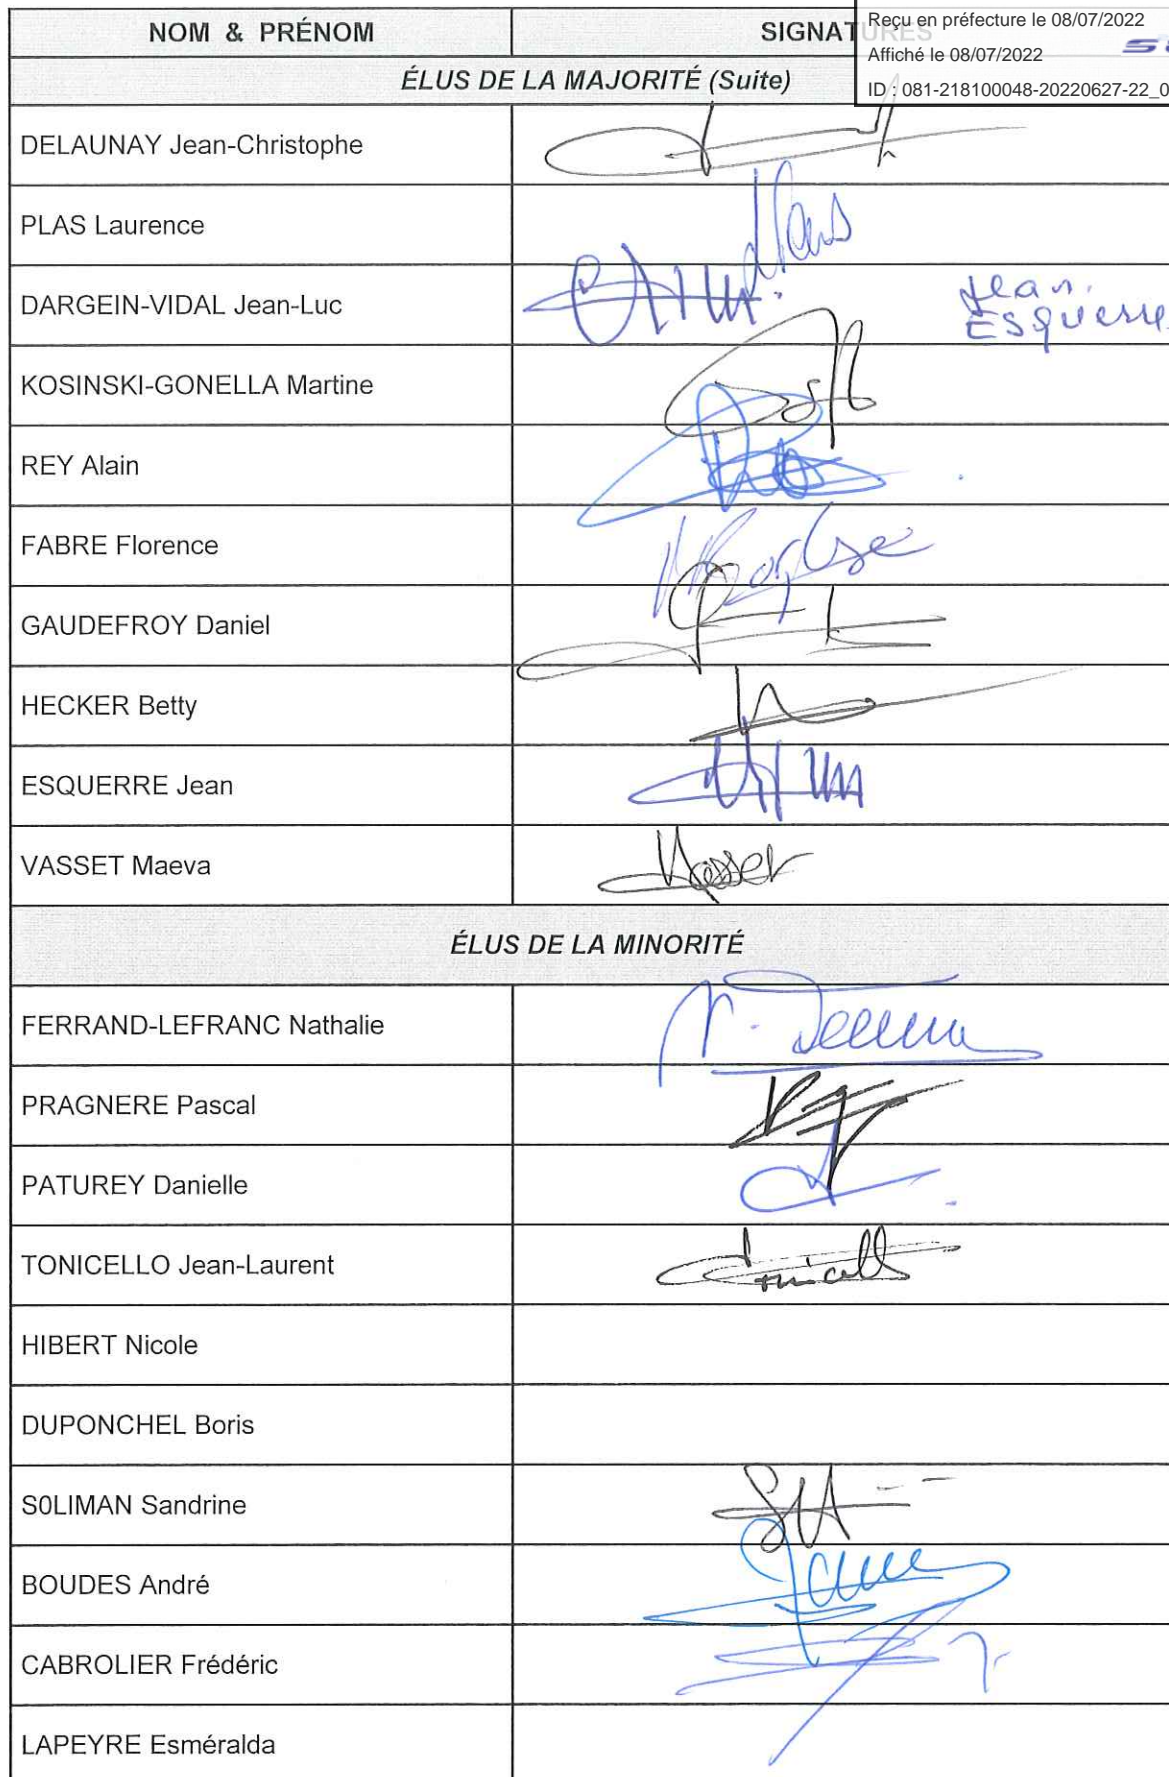 NOM & PRÉNOM SIGNATURES
Reçu en préfecture le 08/07/2022
Affiché le 08/07/2022
ID : 081-218100048-20220627-22_0
ÉLUS DE LA MAJORITÉ (Suite)
DELAUNAY Jean-Christophe
PLAS Laurence
DARGEIN-VIDAL Jean-Luc
Jean
ESquerre
KOSINSKI-GONELLA Martine
REY Alain
FABRE Florence
GAUDEFROY Daniel
HECKER Betty
ESQUERRE Jean
VASSET Maeva
Vasset
ÉLUS DE LA MINORITÉ
FERRAND-LEFRANC Nathalie
PRAGNERE Pascal
PATUREY Danielle
TONICELLO Jean-Laurent
HIBERT Nicole
DUPONCHEL Boris
S0LIMAN Sandrine
BOUDES André
CABROLIER Frédéric
LAPEYRE Esméralda